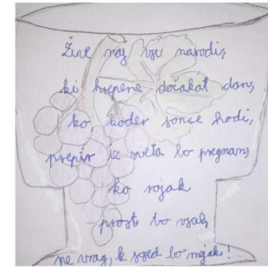 Žive naj vsi narodi,
ki hrepene dočakat dan,
ko, koder sonce hodi,
prepir iz sveta bo pregnan,
ko rojak
prost bo vsak,
ne vrag, le sosed bo mejak!